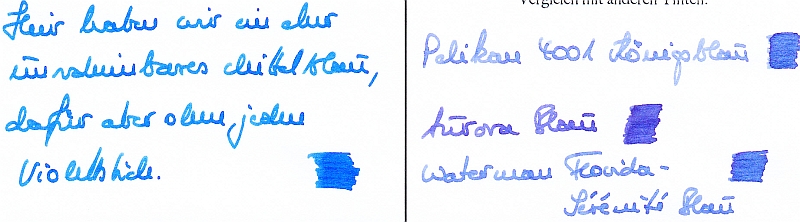 Hier haben wir ein eher
unscheinbares Mittelblau,
dafür aber ohne jeden
Violettstich.
Vergleich mit anderen Tinten:
Pelikan 4001 Königsblau
Aurora Blau
Waterman Florida-
Sérénité Blau